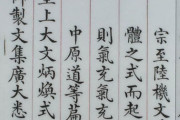 宗至陸機文
體之式而起
則氣充氣充
中原道等篇
至上大文炳煥式
製文集廣大悉